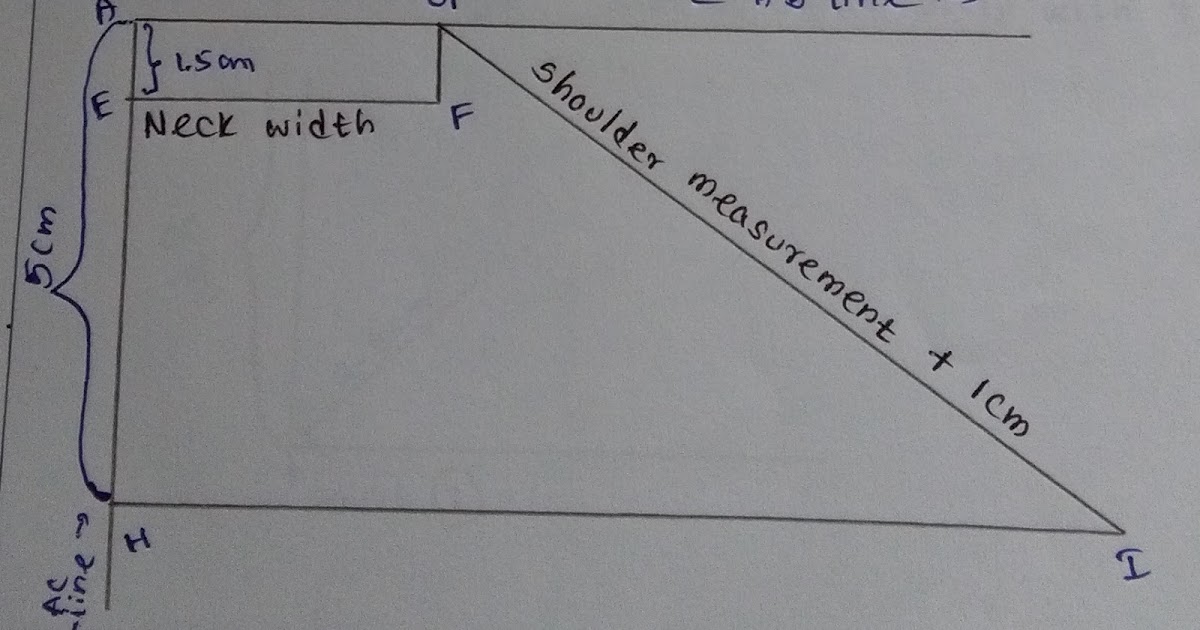 A
1.5 cm
E
Neck width
F
shoulder measurement + 1cm
5 cm
H
I
AC
line →